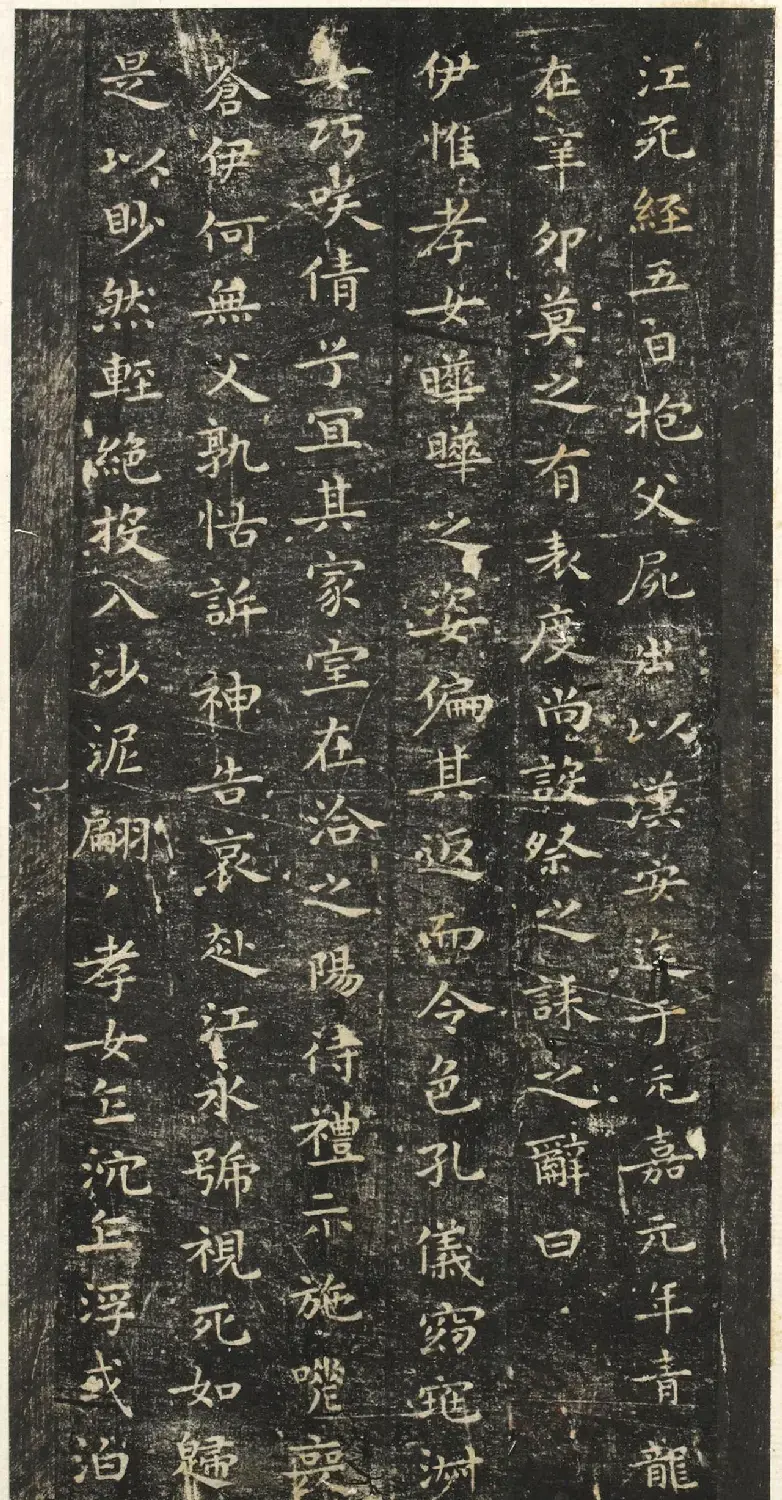 江死經五日抱父屍出以漢安迄于元嘉元年青龍
在辛卯莫之有表度尚設祭之誄之辭曰
伊惟孝女曄曄之姿偏其返而令色孔儀窈窕淑
女巧咲倩兮宜其家室在洽之陽待禮未施嗟喪
蒼伊何無父孰怙訴神告哀赴江永號視死如歸
是以眇然輕絶投入沙泥翩〻孝女乍沉乍浮或泊